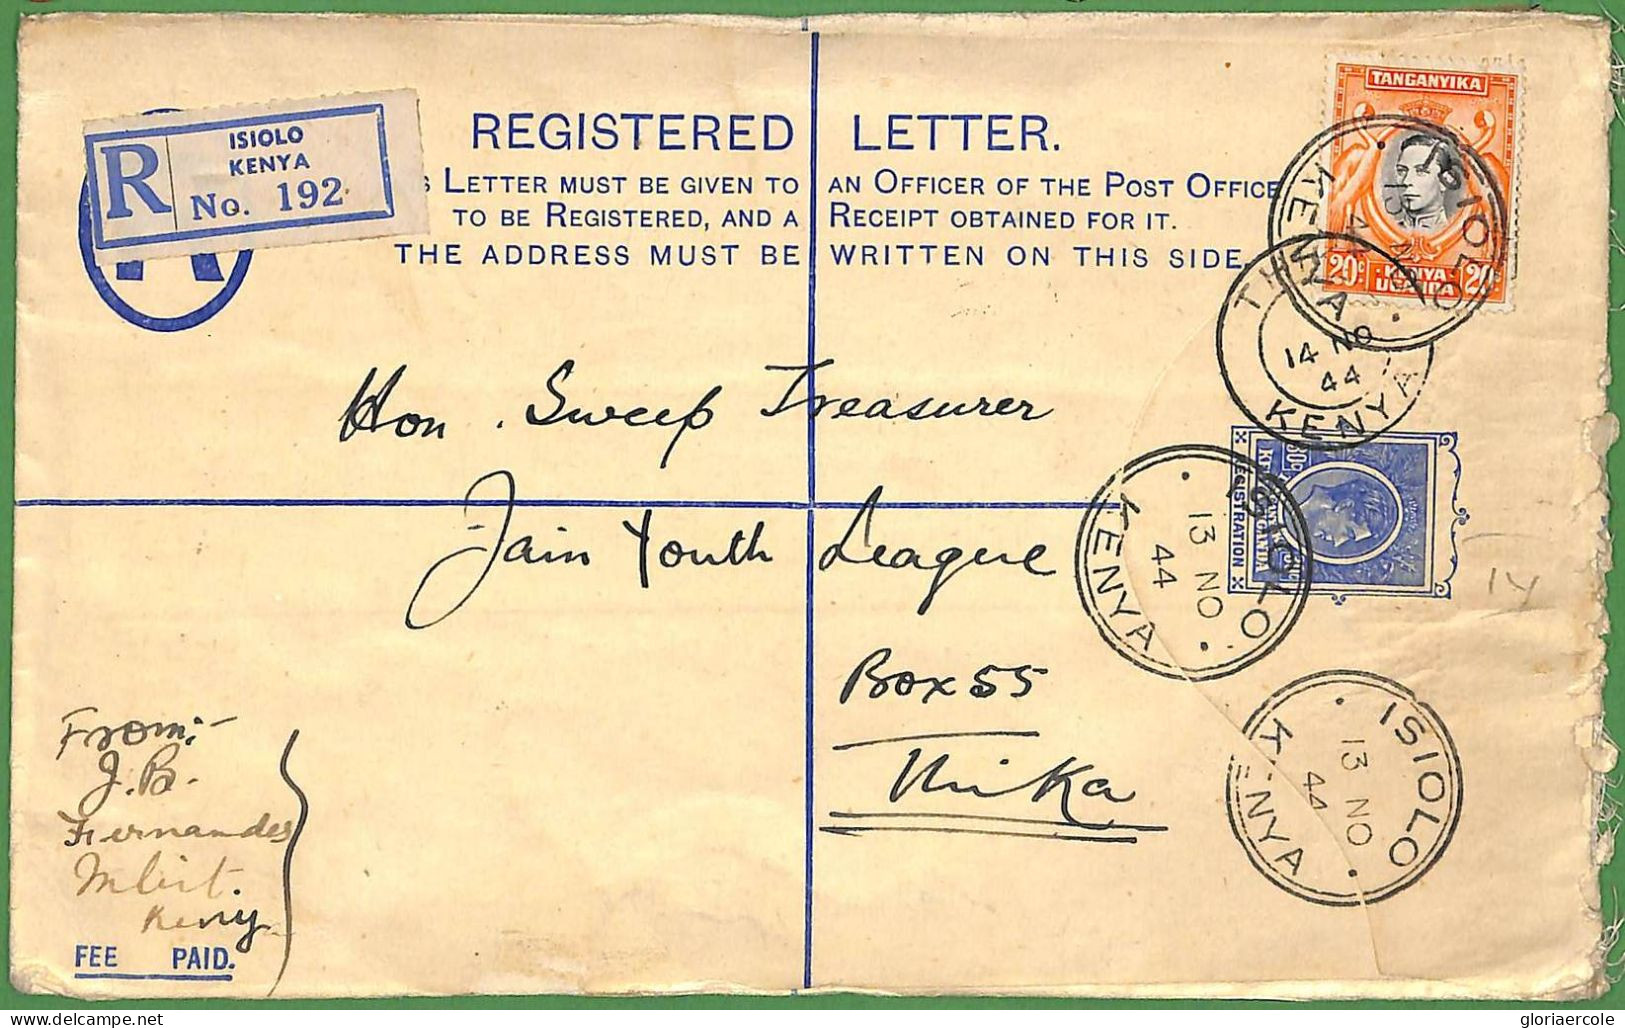 REGISTERED LETTER.
LETTER MUST BE GIVEN TO AN OFFICER OF THE POST OFFICE
TO BE REGISTERED, AND A RECEIPT OBTAINED FOR IT.
THE ADDRESS MUST BE WRITTEN ON THIS SIDE.
R
ISIOLO
KENYA
No. 192
TANGANYIKA
20c KENYA 20c
UGANDA
ISIOLO
13 NO
44
KENYA
14 NO
44
KENYA
Hon. Sweep Treasurer
Jain Youth League
Box 55
Thika
30c
REGISTRATION
ISIOLO
13 NO
44
KENYA
ISIOLO
13 NO
44
KENYA
14
From:-
J.B.
Fernandes
Kenya
FEE PAID.
delcampe.net
gloriaercole